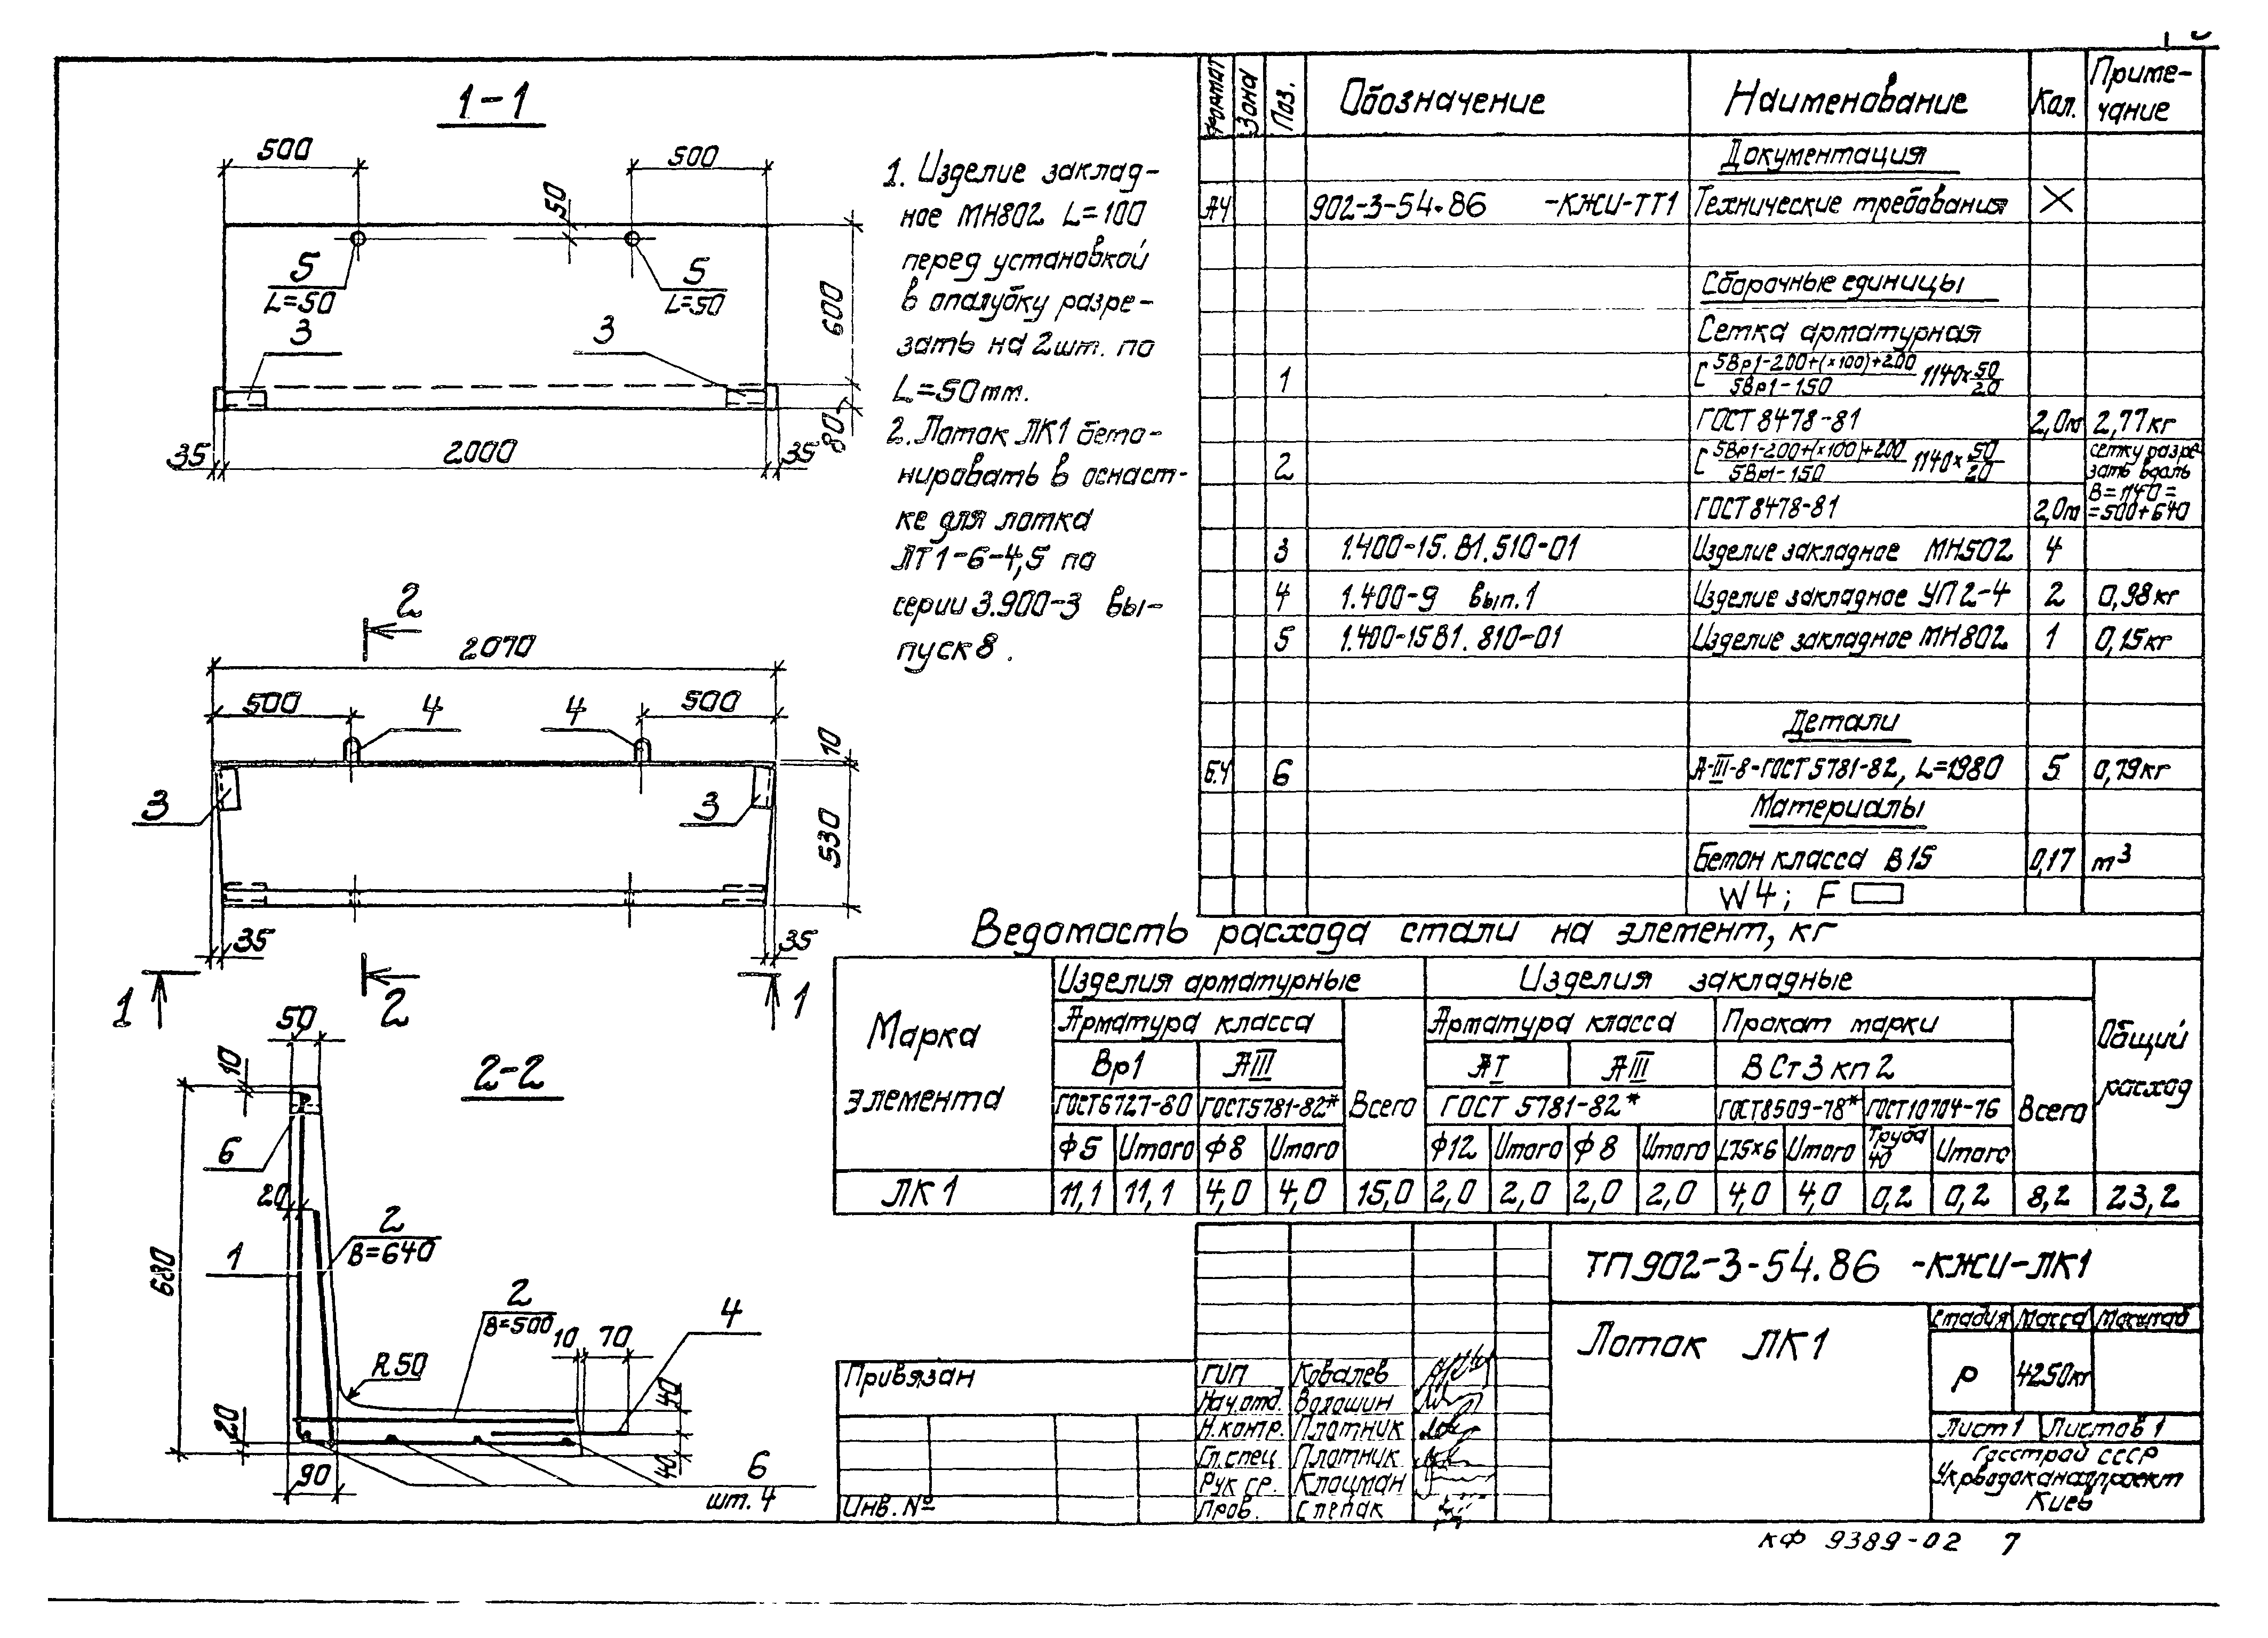 1-1
500
500
50
5
L=50
5
L=50
3
3
600
80
35
2000
35
1. Изделие заклад-
ное МН802 L=100
перед установкой
в опалубку разре-
зать на 2шт. по
L=50mm.
2. Лоток ЛК1 бето-
нировать в оснаст-
ке для лотка
ЛТ1-6-4,5 по
серии 3.900-3 вы-
пуск 8.
2
2070
500
4
4
500
10
3
3
530
35
35
1
2
1
2-2
50
10
6
20
2
B=640
1
680
2
B=500
10
70
4
R50
40
40
20
90
6
шт. 4
Формат Зона Поз. Обозначение Наименование Кол. Приме-
чание
Документация
А4 902-3-54.86 -КЖИ-ТТ1 Технические требования X
Сборочные единицы
Сетка арматурная
1 С 5Вр1-200+(×100)+200 / 5Вр1-150 1140×50/20
ГОСТ 8478-81 2,0м 2,77кг
2 С 5Вр1-200+(×100)+200 / 5Вр1-150 1140×50/20 сетку разре
зать вдоль
B=1140=
ГОСТ 8478-81 2,0м =500+640
3 1.400-15.В1.510-01 Изделие закладное МН502 4
4 1.400-9 вып.1 Изделие закладное УП2-4 2 0,98кг
5 1.400-15В1.810-01 Изделие закладное МН802 1 0,15кг
Детали
Б.Ч 6 А-III-8-ГОСТ 5781-82, L=1980 5 0,79кг
Материалы
Бетон класса В15 0,17 m³
W4; F
Ведомость расхода стали на элемент, кг
Марка
элемента
Изделия арматурные Изделия закладные Общий
расход
Арматура класса Всего Арматура класса Прокат марки Всего
Вр1 АIII АI АIII ВСт3кп2
ГОСТ6727-80 ГОСТ5781-82* ГОСТ 5781-82* ГОСТ8509-78* ГОСТ10704-76
Ф5 Итого Ф8 Итого Ф12 Итого Ф8 Итого L75×6 Итого Труба
40 Итого
ЛК1 11,1 11,1 4,0 4,0 15,0 2,0 2,0 2,0 2,0 4,0 4,0 0,2 0,2 8,2 23,2
ТП902-3-54.86 -КЖИ-ЛК1
Лоток ЛК1
Стадия Масса Масштаб
Р 4250кг
Лист 1 Листов 1
Госстрой СССР
Укрводоканалпроект
Киев
Привязан
Инв. №
ГИП Ковалев
Нач.отд. Волошин
Н.контр. Плотник
Гл.спец Плотник
Рук гр. Клоцман
Пров. Слепак
КФ 9389-02 7